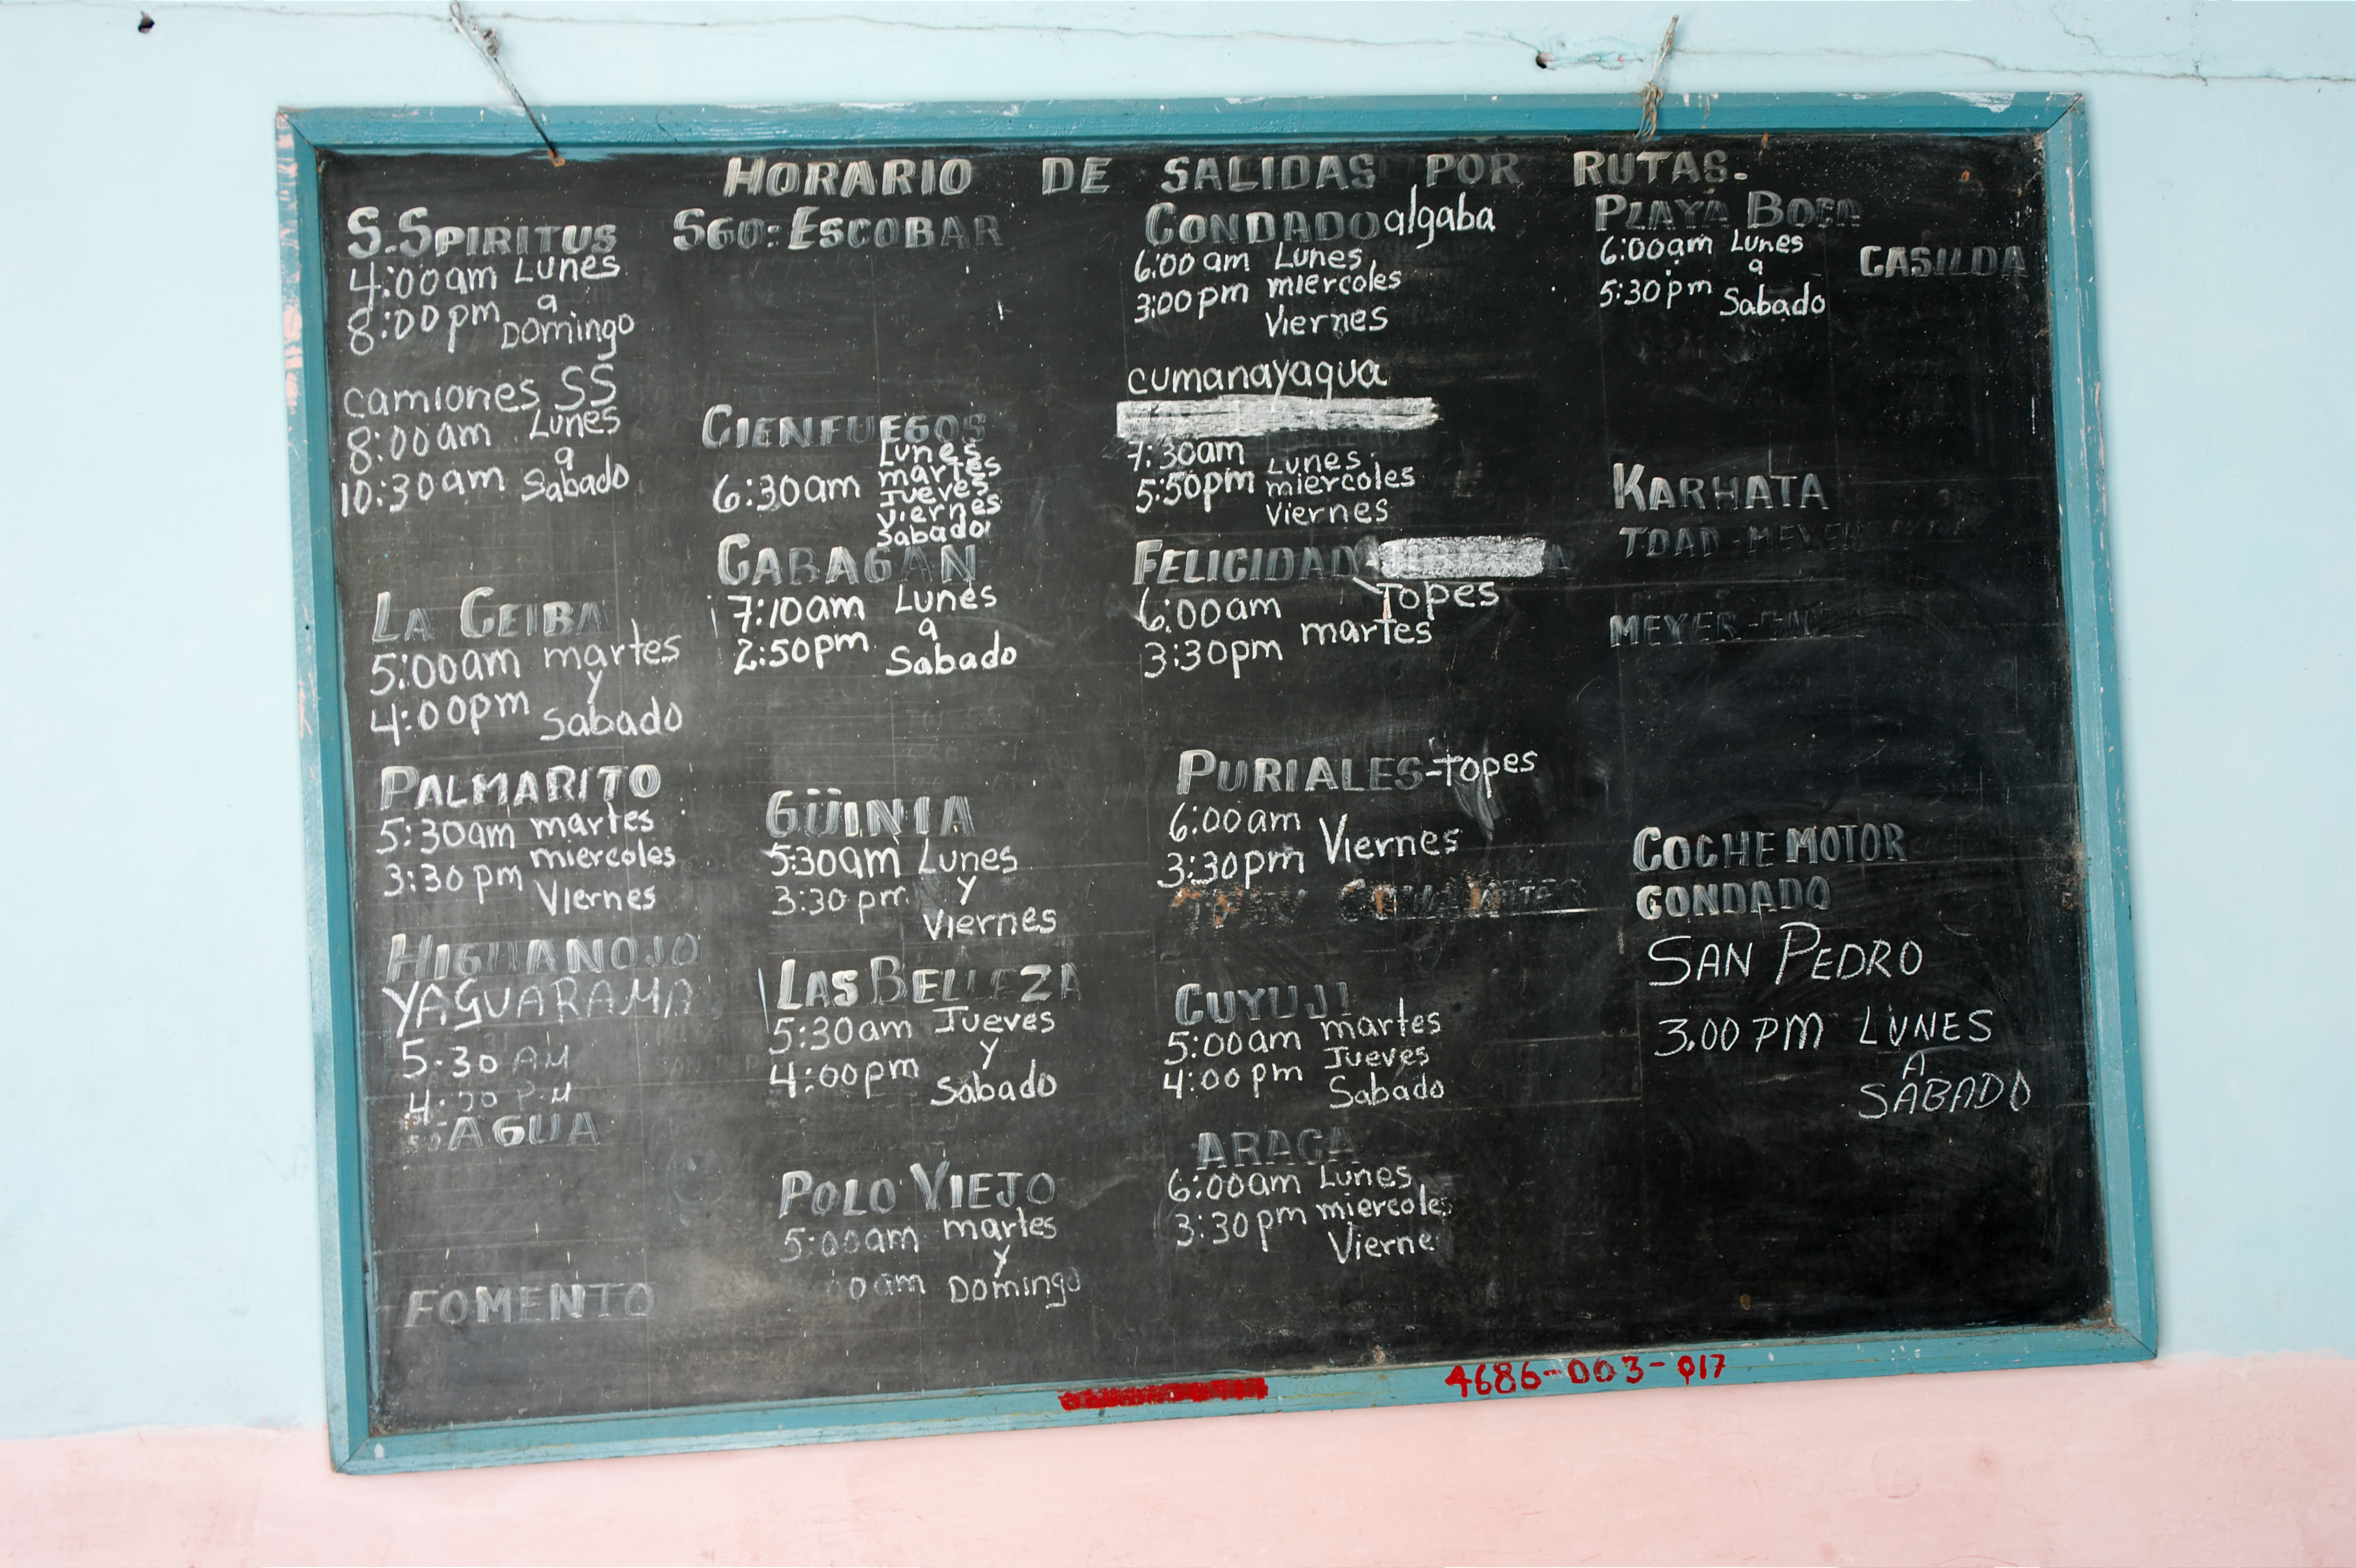 HORARIO DE SALIDAS POR RUTAS.
S.SPIRITUS
4:00am Lunes
a
8:00pm Domingo
camiones SS
8:00am Lunes
a
10:30am Sabado
LA CEIBA
5:00am martes
y
4:00pm Sabado
PALMARITO
5:30am martes
miercoles
3:30pm Viernes
HIGUANOJO
YAGUARAMA
5.30 AM
AGUA
FOMENTO
SGO: ESCOBAR
CIENFUEGOS
Lunes
martes
6:30am Jueves
Viernes
Sabado
CABAGAN
7:10am Lunes
a
2:50pm Sabado
GÜINIA
5:30am Lunes
3:30pm y
Viernes
LAS BELLEZA
5:30am Jueves
y
4:00pm Sabado
POLO VIEJO
5:00am martes
y
00am Domingo
CONDADO algaba
6:00am Lunes
3:00pm miercoles
Viernes
cumanayagua
7:30am Lunes
5:50pm miercoles
Viernes
FELICIDAD
Topes
6:00am
martes
3:30pm
PURIALES-Topes
6:00am
Viernes
3:30pm
CUYUJI
5:00am martes
Jueves
4:00pm Sabado
ARACA
6:00am Lunes
3:30pm miercoles
Vierne
PLAYA BOCA
6:00am Lunes
a
5:30pm Sabado
CASILDA
KARHATA
MEYER
COCHE MOTOR
CONDADO
SAN PEDRO
3.00 PM LUNES
A
SABADO
4686-003-017